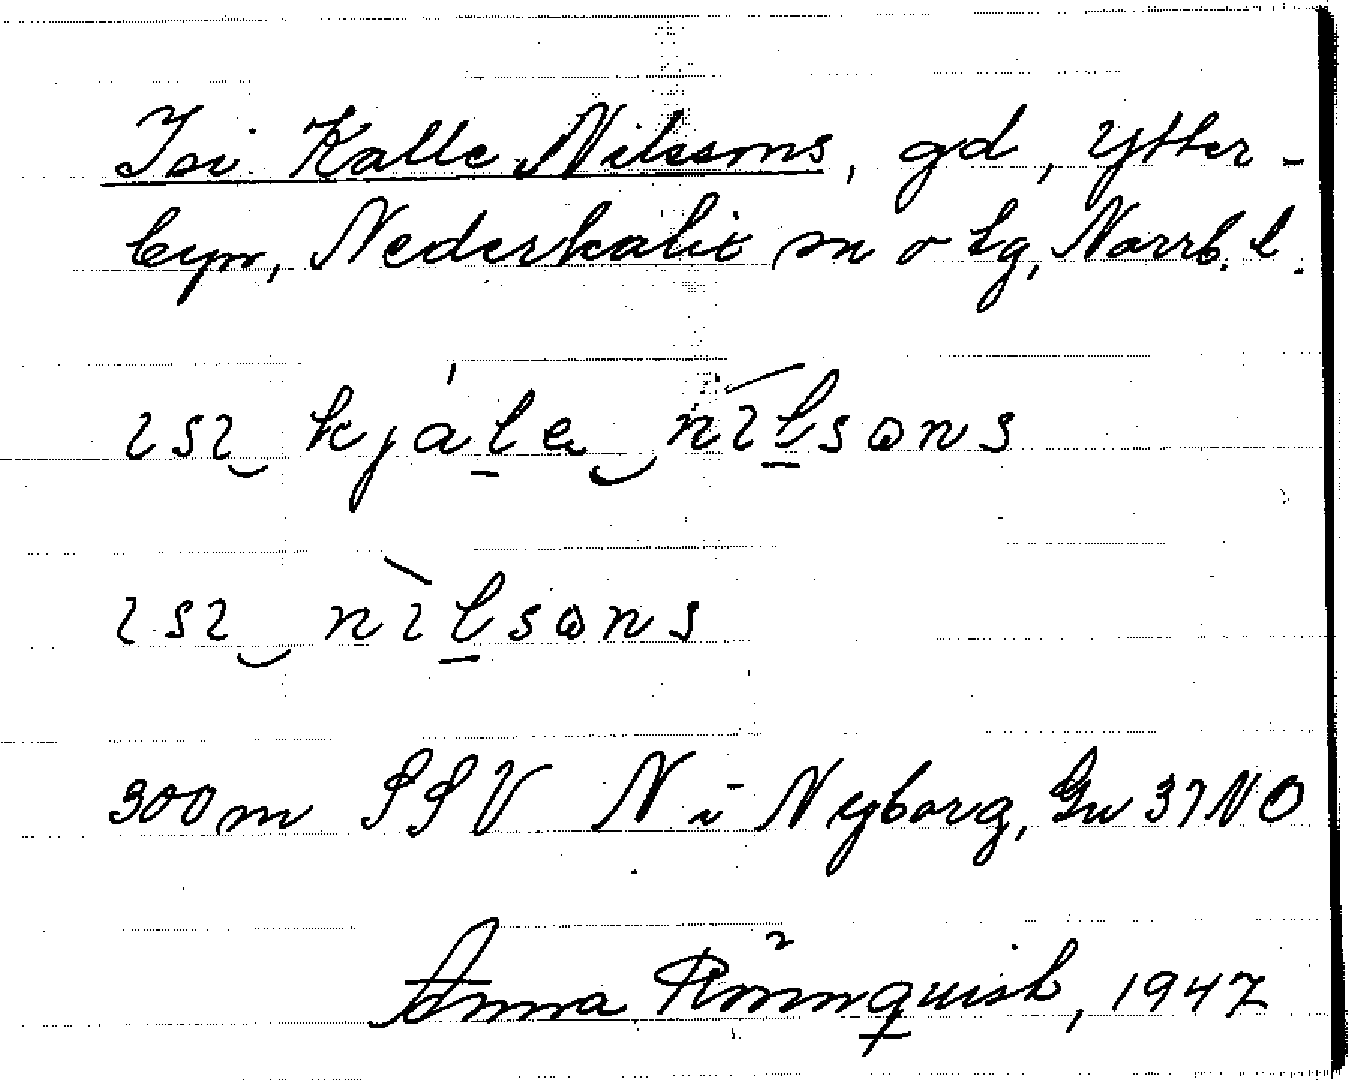 Isi Kalle Nilssons, gd, Ytter-
byn, Nederkalix sn o tg, Norrb. l.
ɩsɩ‿ kjálₑa‿ nɩl̲sɷns
ɩsɩ‿ nɩ̀l̲sɷns
300 m SSV N i Nyborg, Gu 37 NO
Anna Rönnquist, 1947